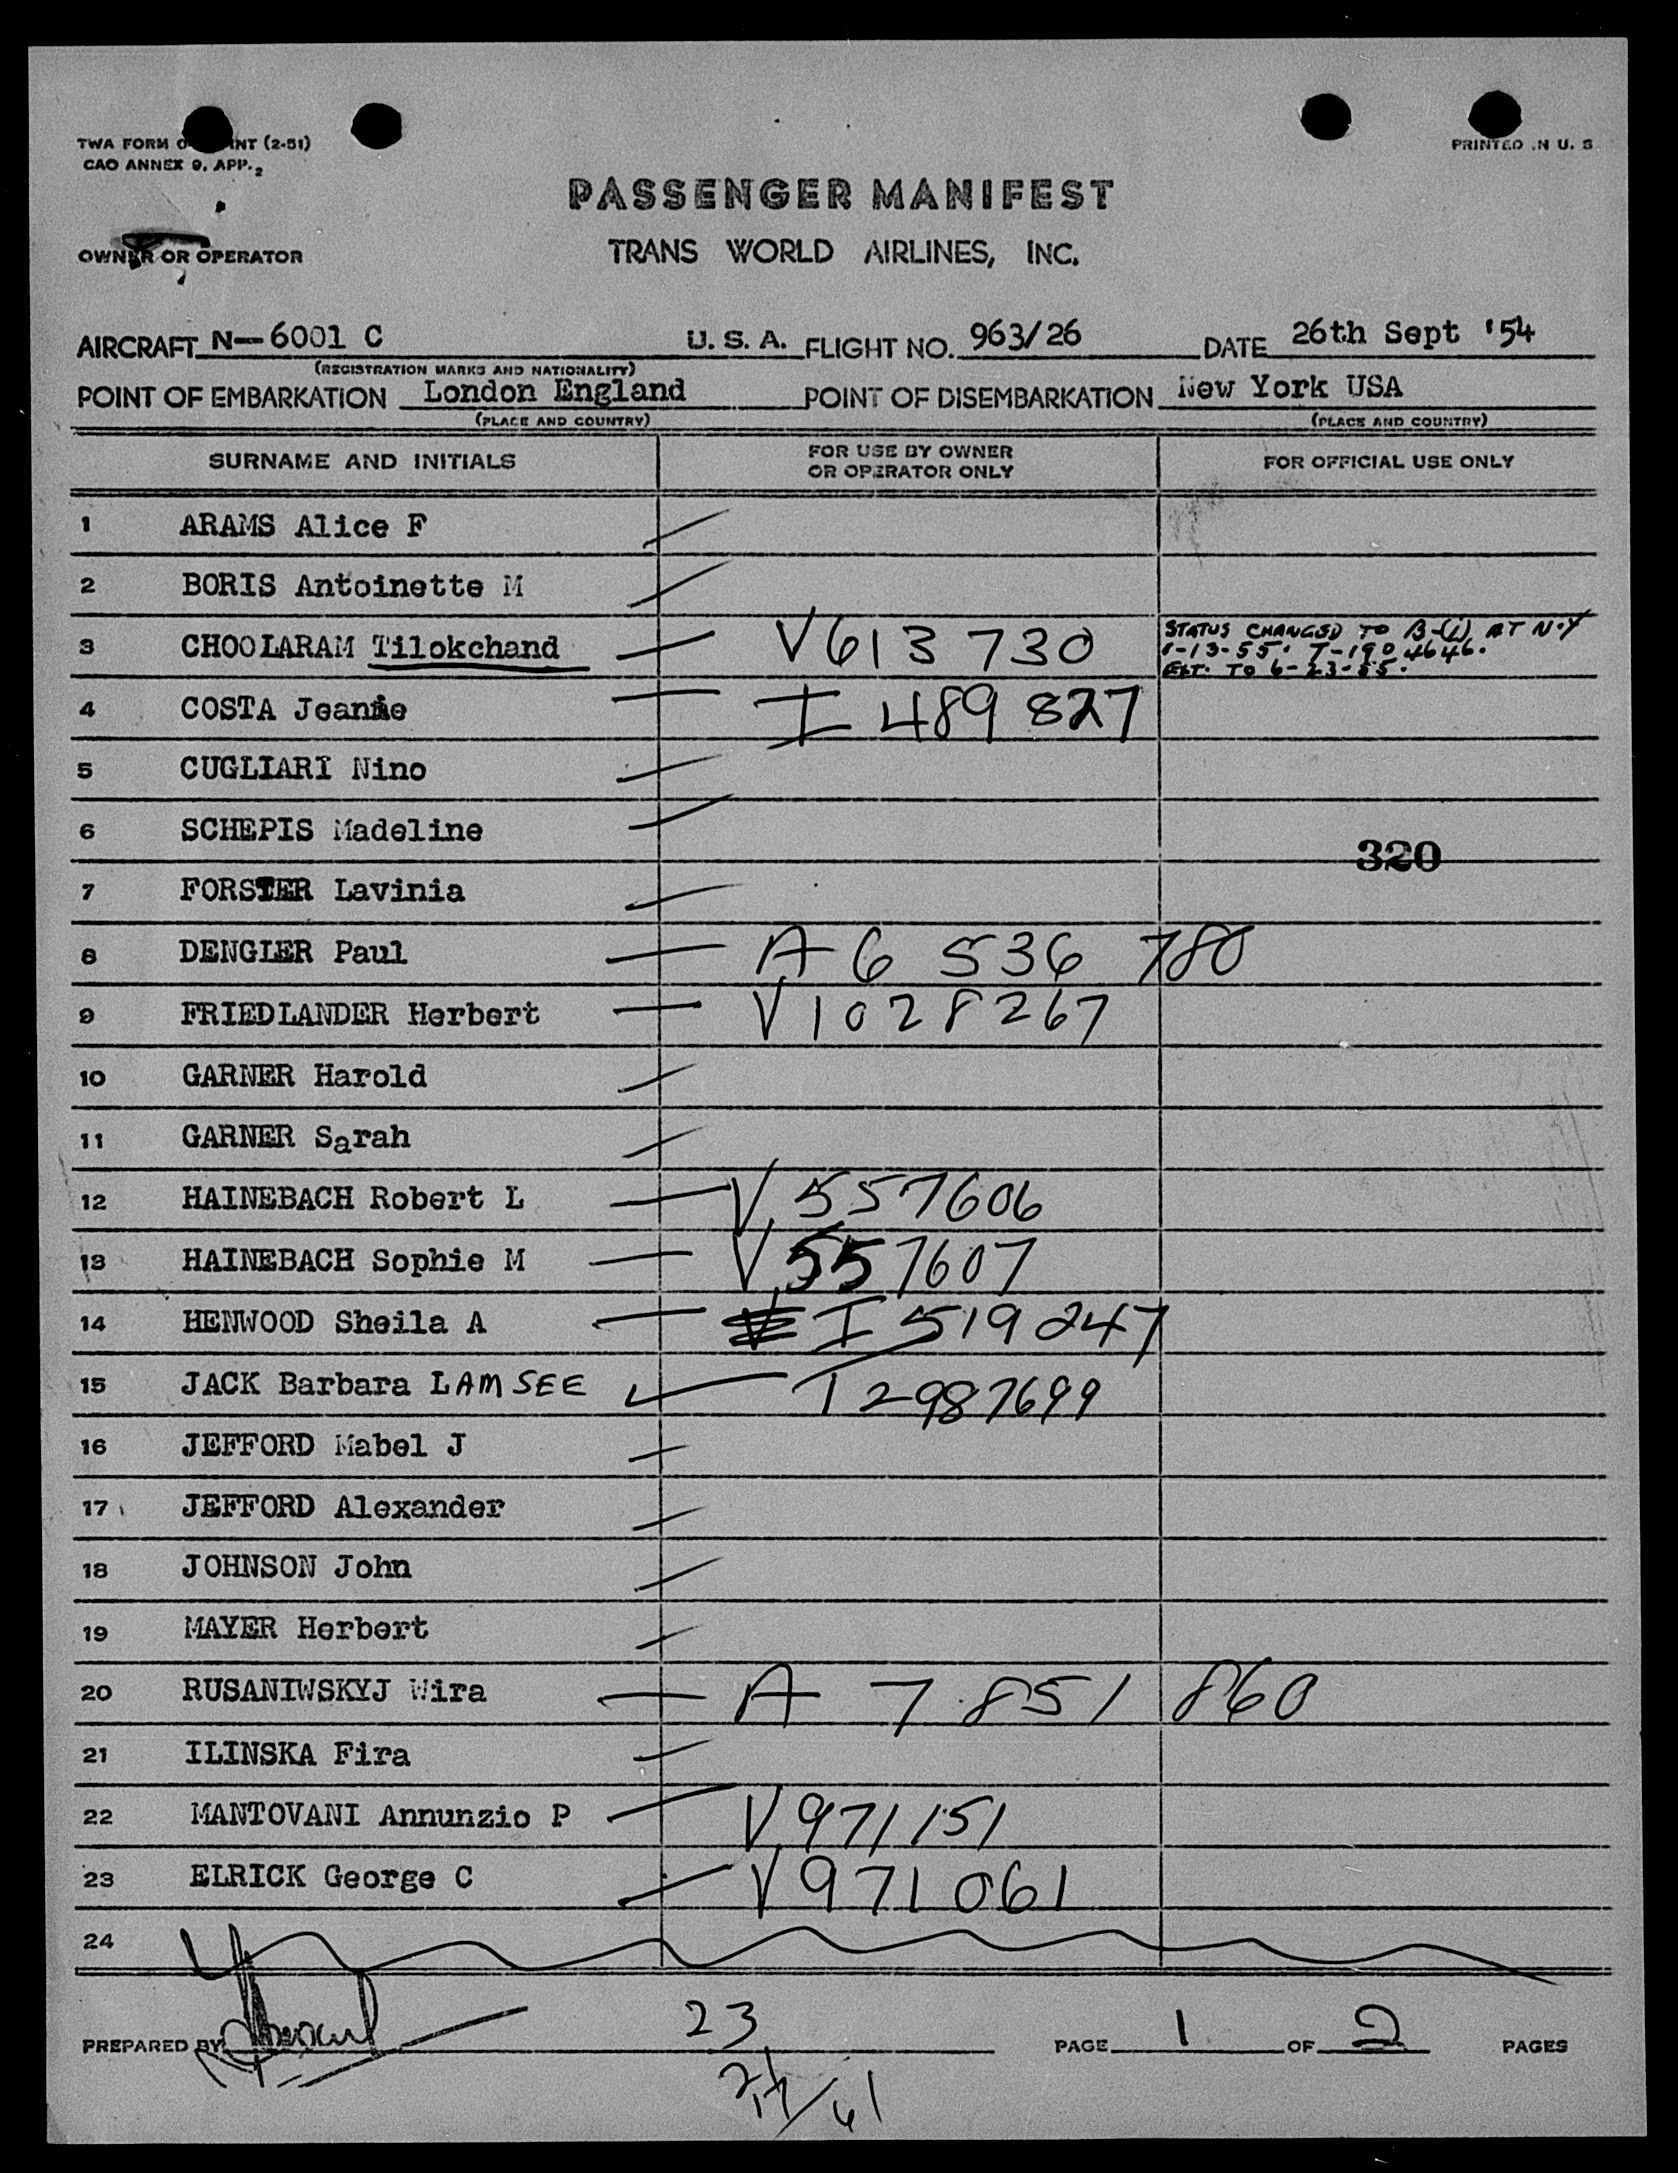 TWA FORM O NT (2-51)
CAO ANNEX 9, APP. 2
PRINTED IN U. S
PASSENGER MANIFEST
OWNER OR OPERATOR
TRANS WORLD AIRLINES, INC.
AIRCRAFT N-6001 C U. S. A. FLIGHT NO. 963/26 DATE 26th Sept '54
(REGISTRATION MARKS AND NATIONALITY)
POINT OF EMBARKATION London England POINT OF DISEMBARKATION New York USA
(PLACE AND COUNTRY) (PLACE AND COUNTRY)
SURNAME AND INITIALS FOR USE BY OWNER OR OPERATOR ONLY FOR OFFICIAL USE ONLY
1 ARAMS Alice F
2 BORIS Antoinette M
3 CHOOLARAM Tilokchand V613 730 STATUS CHANGED TO B-(1) AT N.Y
1-13-55. T-1904646.
EXT. TO 6-23-55.
4 COSTA Jeanie I 489 827
5 CUGLIARI Nino
6 SCHEPIS Madeline
320
7 FORSTER Lavinia
8 DENGLER Paul A 6 536 780
9 FRIEDLANDER Herbert V1028267
10 GARNER Harold
11 GARNER Sarah
12 HAINEBACH Robert L V 557606
13 HAINEBACH Sophie M V 557607
14 HENWOOD Sheila A I 519247
15 JACK Barbara LAM SEE T2987699
16 JEFFORD Mabel J
17 JEFFORD Alexander
18 JOHNSON John
19 MAYER Herbert
20 RUSANIWSKYJ Wira A 7 851 860
21 ILINSKA Fira
22 MANTOVANI Annunzio P V971151
23 ELRICK George C V971061
24
PREPARED BY 23 PAGE 1 OF 2 PAGES